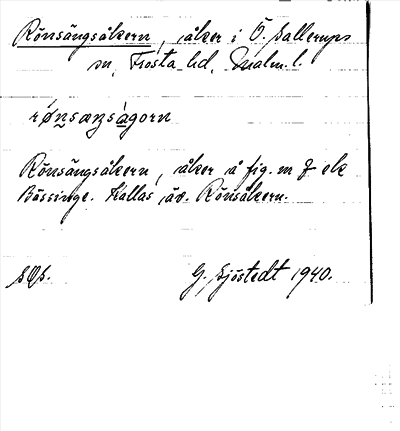 Rönsängsåkern, åker i Ö. Sallerups
sn, Frosta hd, Malm. l.
rønsæŋsågorn
Rönsängsåkern, åker å fig. m f elr
Bässinge. Kallas äv. Rönsåkern.
G. Sjöstedt 1940.